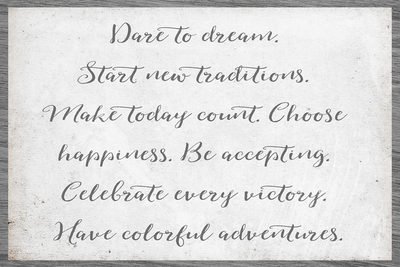 Dare to dream.
Start new traditions.
Make today count. Choose
happiness. Be accepting.
Celebrate every victory.
Have colorful adventures.